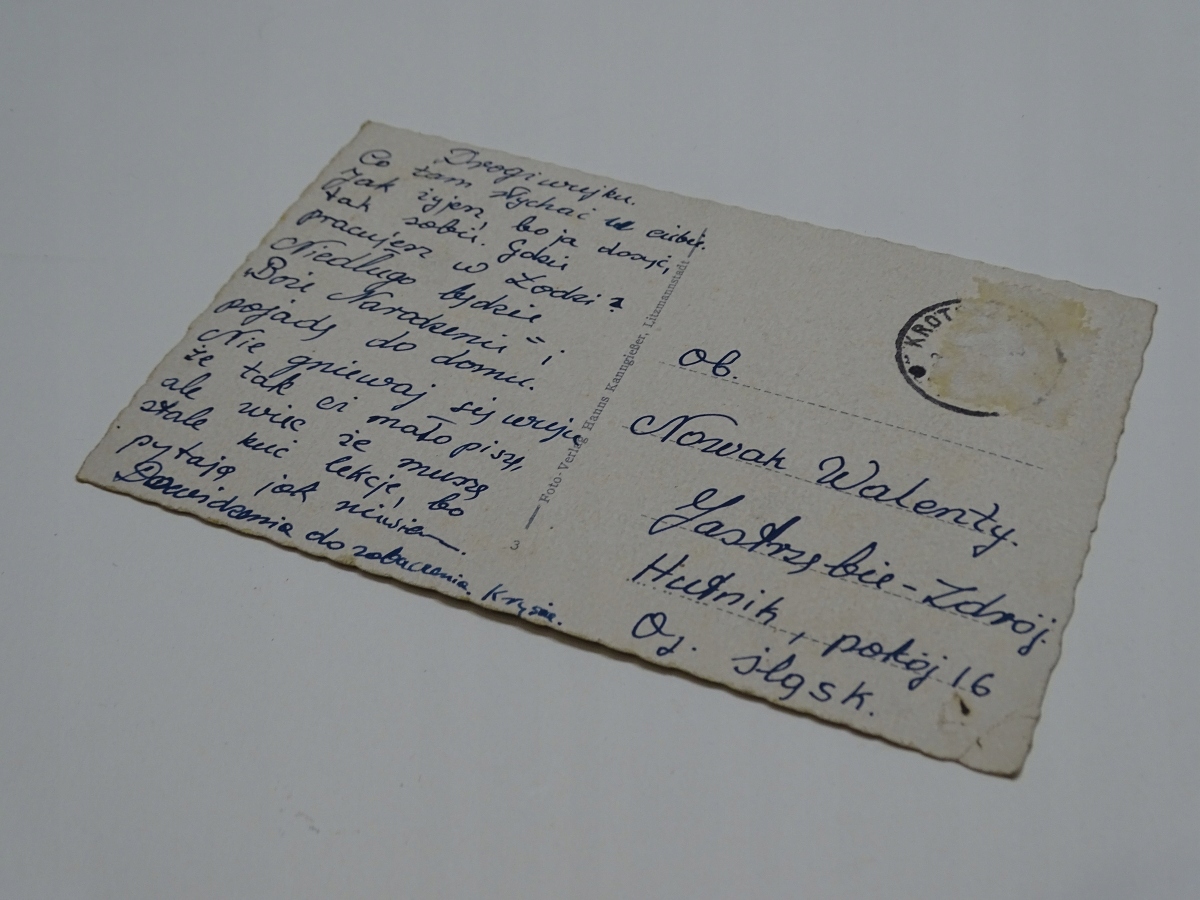 Drogi wujku.
Co tam słychać u ciebie.
Jak żyjesz, bo ja dosyć,
tak sobie. Gdzie
pracujesz w Łodzi?
Niedługo będzie
Boże Narodzenie - i
pojadę do domu.
Nie gniewaj się wuju
że tak ci mało piszę,
ale wiec że muszę
stale kuć lekcje, bo
pytają, jak
Dowidzenia do zobaczenia. Krysia.
Foto-Verlag Hanns Kanngießer, Litzmannstadt
3
KROT
Ob.
Nowak Walenty.
Jastrzębie-Zdrój.
Hutnik, pokój 16
śląsk.